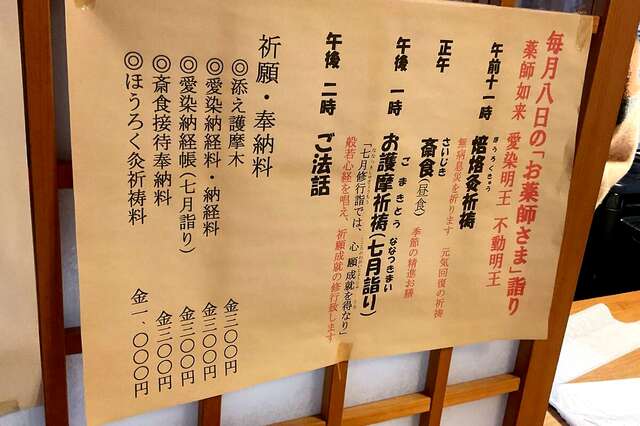 毎月八日の「お薬師さま」詣り
薬師如来 愛染明王 不動明王
午前十一時 焙烙灸祈祷
ほうろくきゅう
無病息災を祈ります 元気回復の祈祷
正午 斎食(昼食)
さいじき
季節の精進お膳
午後 一時 お護摩祈祷(七月詣り)
ごまきとう ななつきまいり
「七月修行詣では、心願成就を得なり」
般若心経を唱え、祈願成就の修行致します
午後 二時 ご法話
祈願・奉納料
◎添え護摩木 金三〇〇円
◎愛染納経料・納経料 金三〇〇円
◎愛染納経帳(七月詣り) 金三〇〇円
◎斎食接待奉納料 金三〇〇円
◎ほうろく灸祈祷料 金一、〇〇〇円